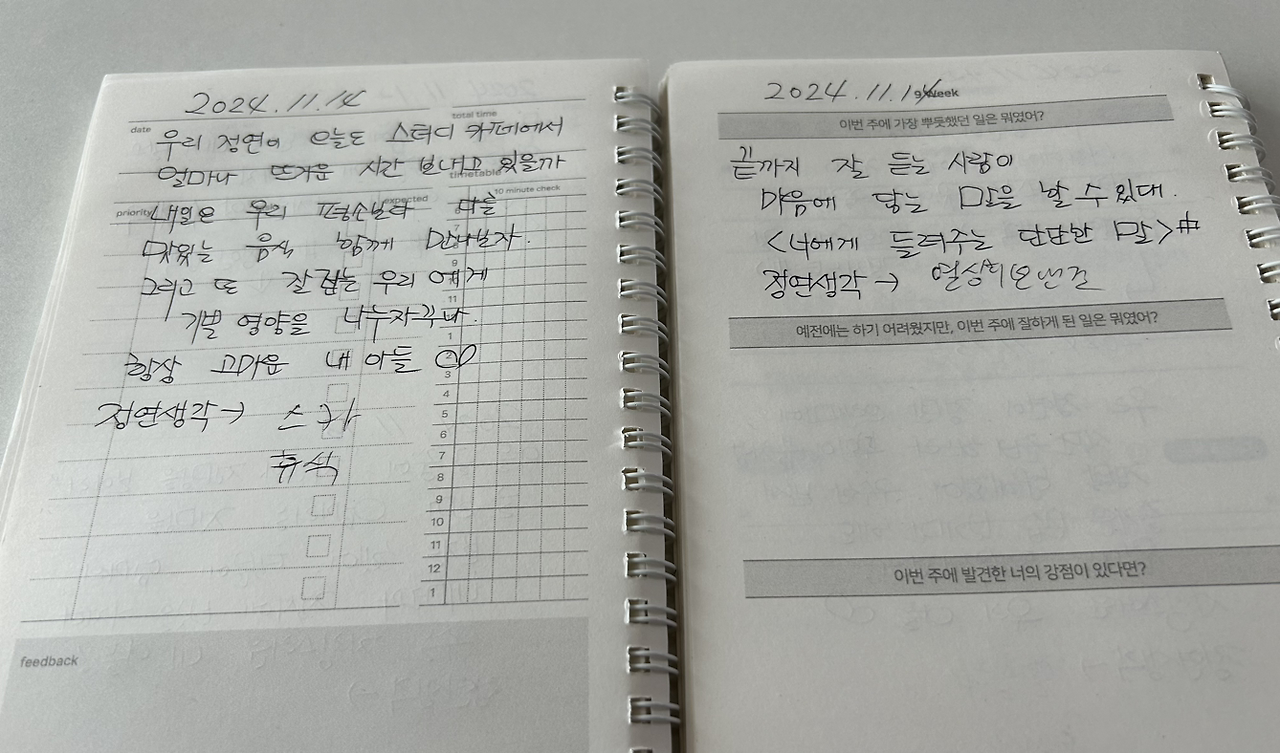 2024.11.14
date
total time
우리 정연이 오늘도 스터디 카페에서
얼마나 뜨거운 시간 보내고 있을까
timetable
10 minute check
priority
expected
내일은 우리
맛있는 음식 함께 만나보자.
그리고 또 잘 하는 우리에게
기별 영양을 나누자꾸나.
항상 고마운 내 아들
정연생각→ 스카
휴식
7
9
11
1
2
3
4
5
6
7
8
9
10
11
12
1
feedback
2024.11.14
9 Week
이번 주에 가장 뿌듯했던 일은 뭐였어?
끝까지 잘 듣는 사람이
마음에 닿는 말을 할 수 있대.
<너에게 들려주는 단단한 말>#
정연생각→
예전에는 하기 어려웠지만, 이번 주에 잘하게 된 일은 뭐였어?
이번 주에 발견한 너의 강점이 있다면?